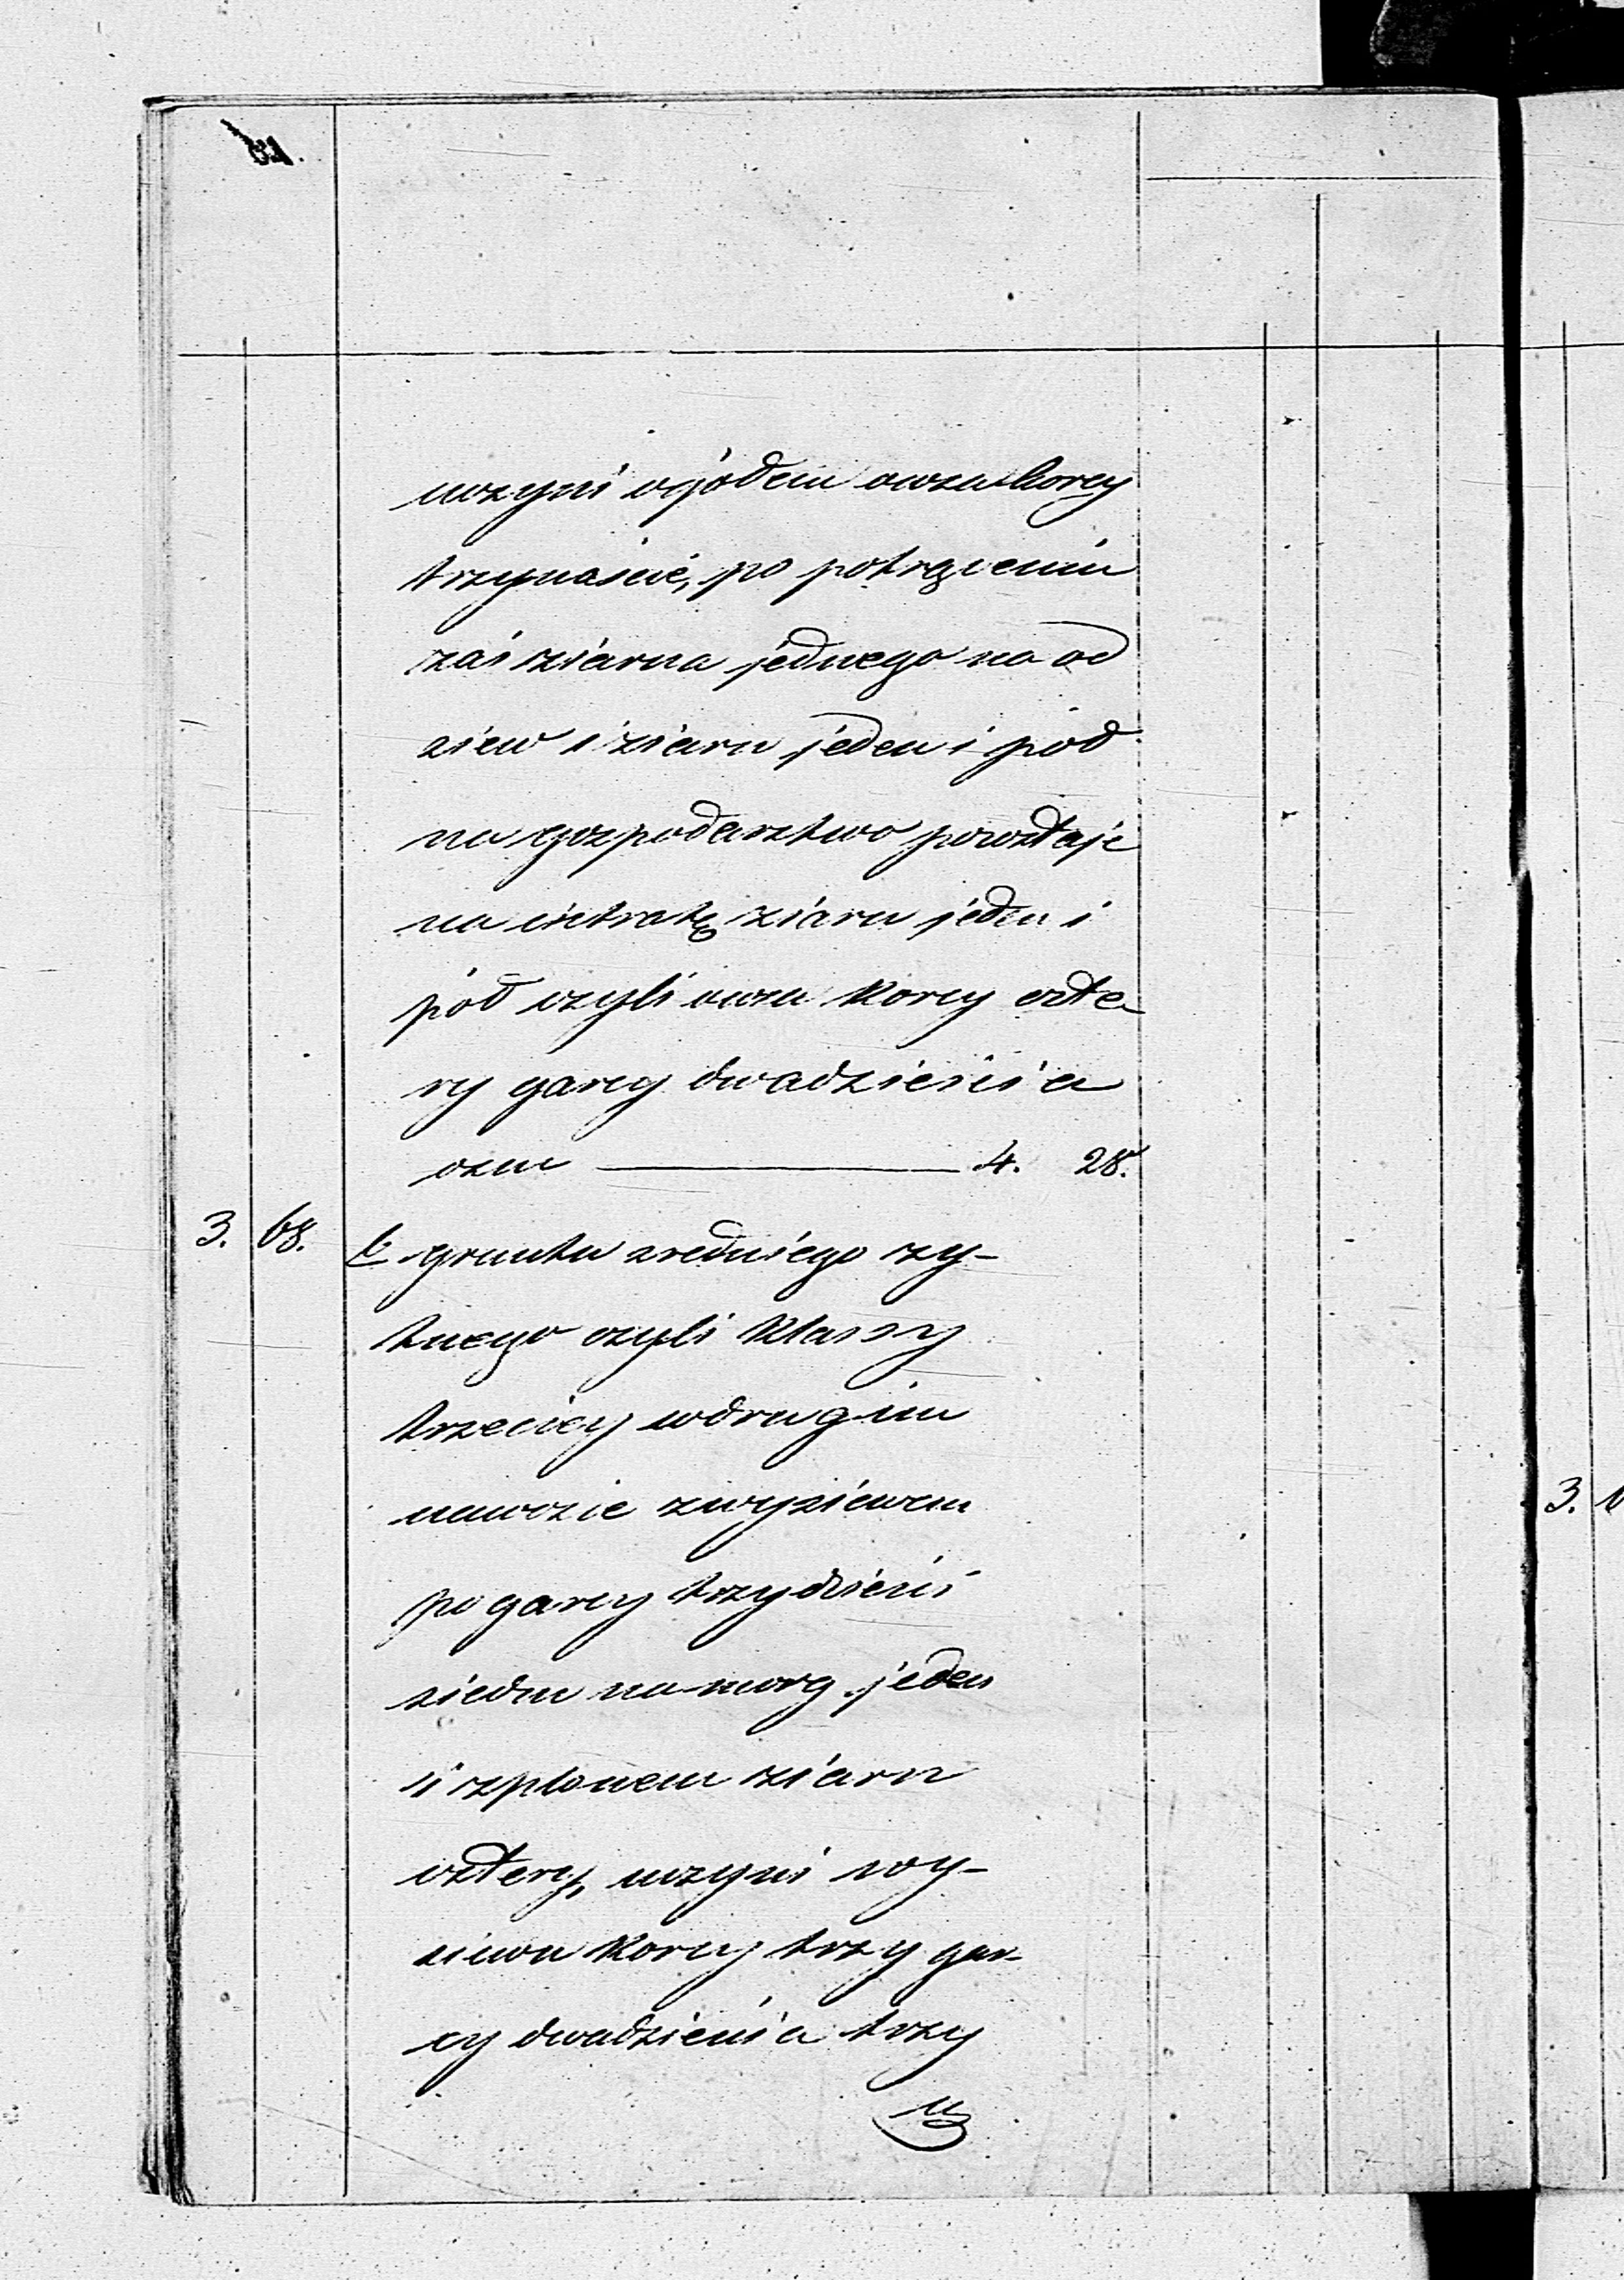 uczyni ogółem owsa korcy
trzynaście, po potrąceniu
zaś ziarna jednego na od
siew i ziarn jeden i pół
na gospodarstwo pozostaje
na intratę ziarn jeden i
pół czyli owsa korcy czte-
ry garcy dwadzieścia
osm 4. 28.
3. 68. C gruntu sredniego ży-
tnego czyli klassy
trzeciey w drugim
nawozie z wysiewem
po garcy trzydzieści
siedm na morg jeden
i z plonem ziarn
cztery, uczyni wy-
siewu korcy trzy gar-
cy dwadzieścia trzy
3.